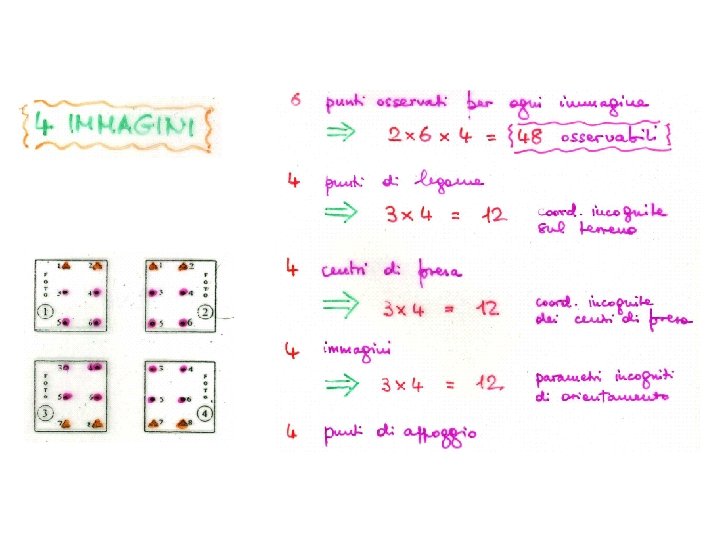 4 IMMAGINI
6 punti osservati per ogni immagine
⇒ 2 x 6 x 4 = {48 osservabili}
4 punti di legame
⇒ 3 x 4 = 12 coord. incognite
sul terreno
4 centri di presa
⇒ 3 x 4 = 12 coord. incognite
dei centri di presa
4 immagini
⇒ 3 x 4 = 12 parametri incogniti
di orientamento
4 punti di appoggio
1 2
FOTO
3 4
1
5 6
1 2
FOTO
3 4
2
5 6
3 4
FOTO
5 6
3
7 8
3 4
FOTO
5 6
4
7 8